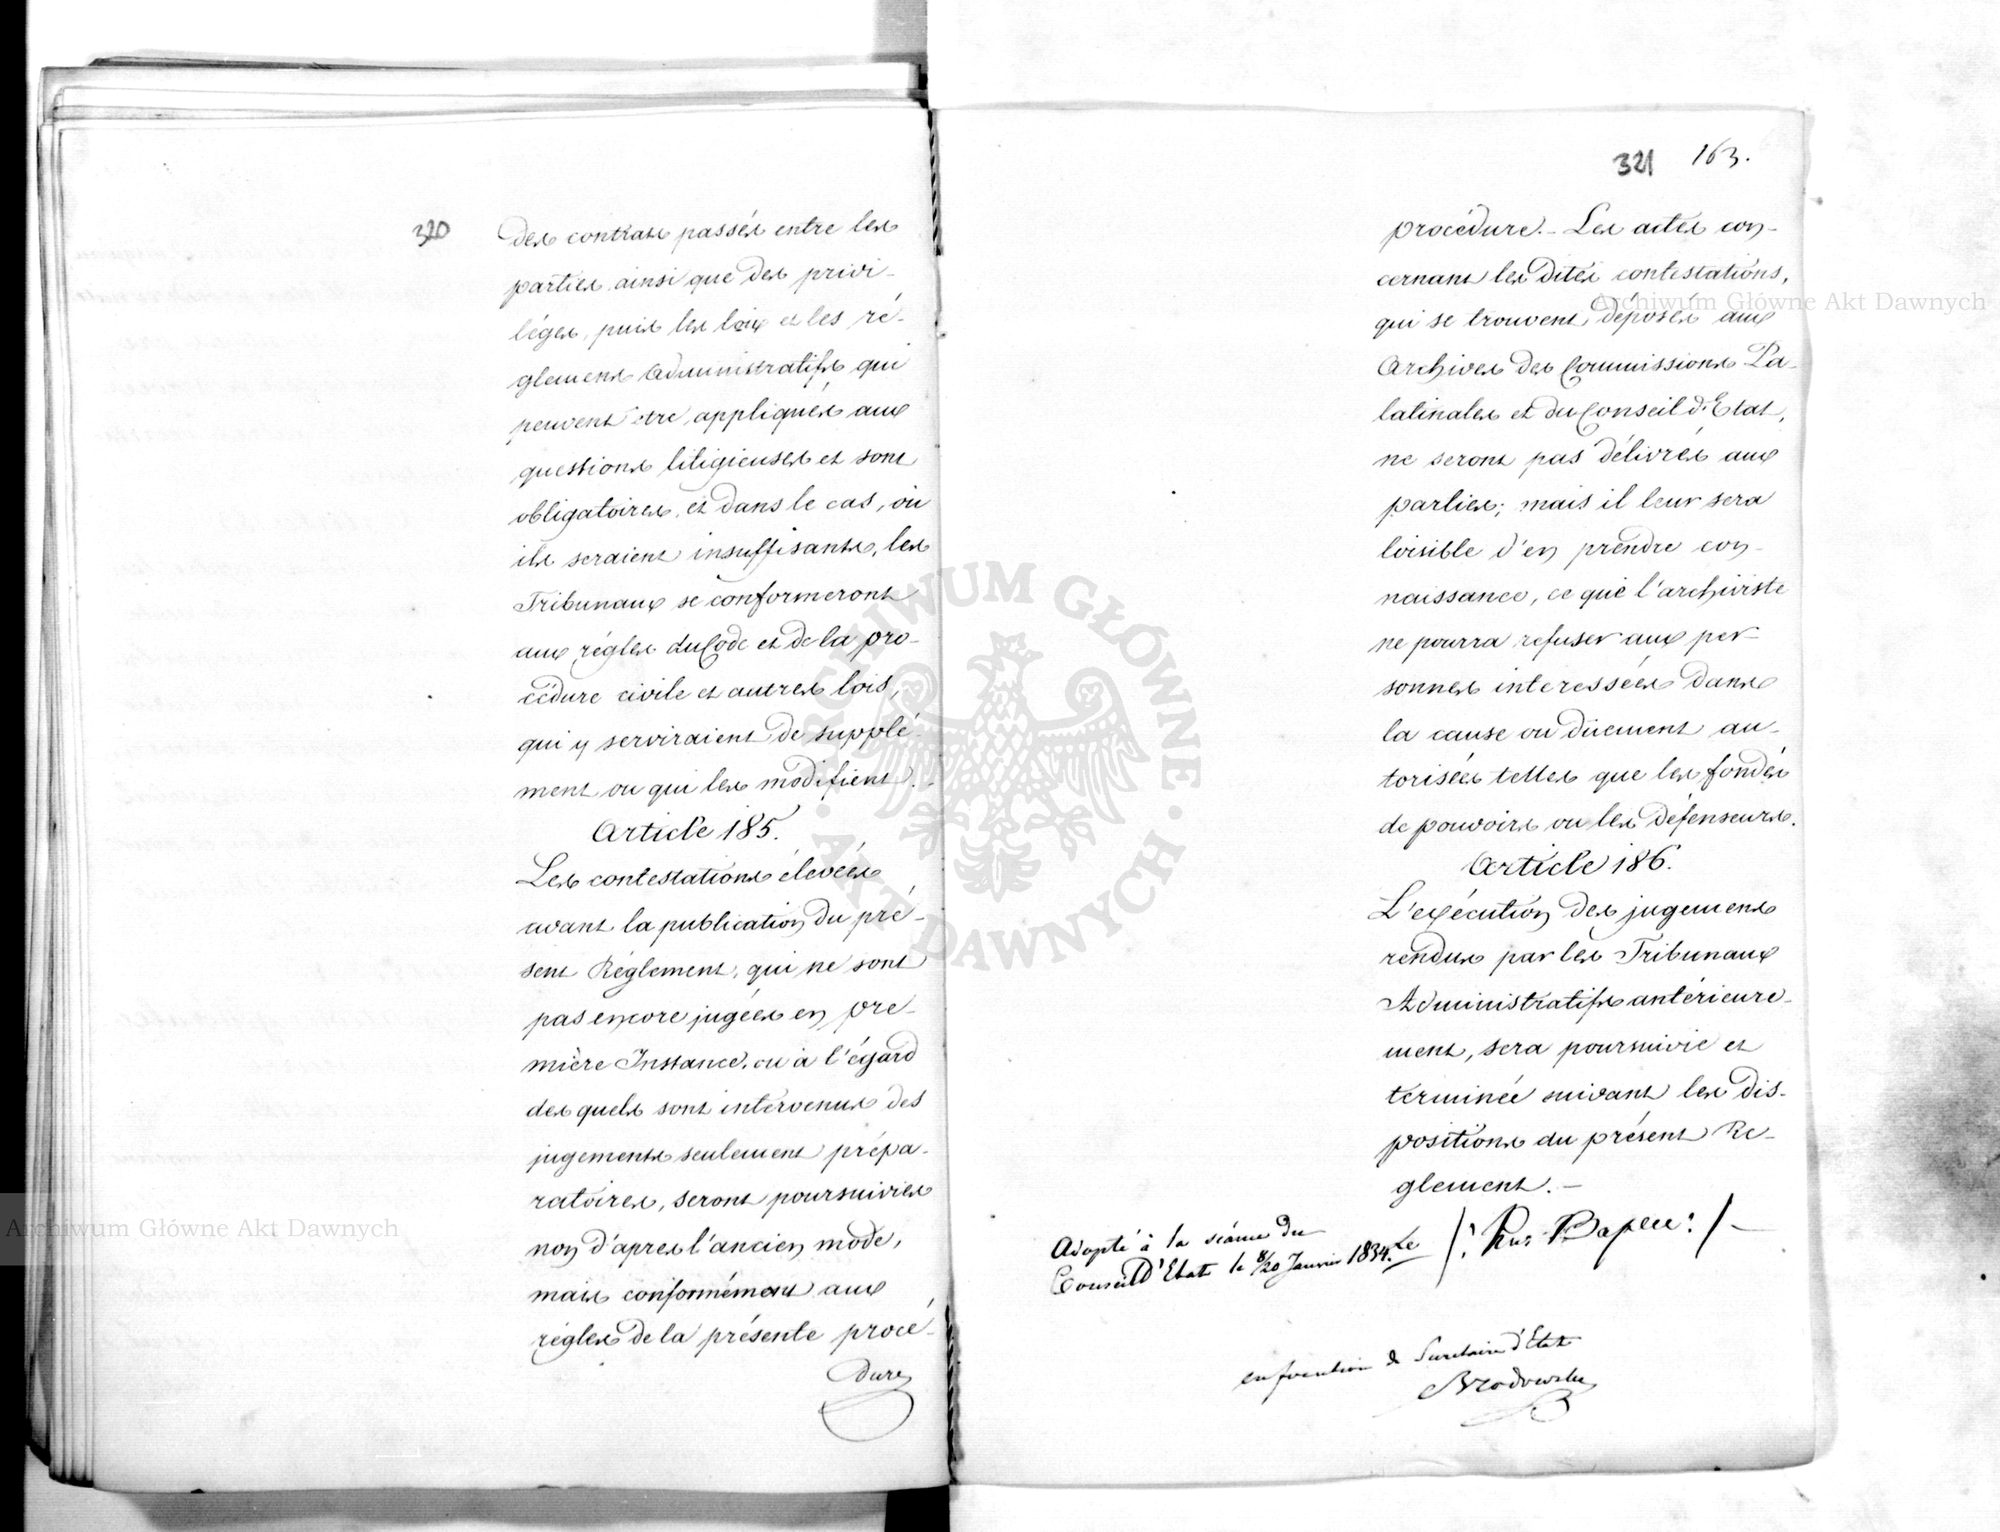 320
des contrats passés entre les
parties, ainsi que des privi-
léges, puis les loix et les ré-
glemens administratifs qui
peuvent être appliqués aux
questions litigieuses et sont
obligatoires, et dans le cas, où
ils seraient insuffisants, les
Tribunaux se conformeront
aux régles du Code et de la pro-
cédure civile et autres lois,
qui y serviraient de supplé-
ment ou qui les modifient.
Article 185.
Les contestations élevées
avant la publication du pré-
sent Réglement, qui ne sont
pas encore jugées en pre-
mière Instance, ou à l'égard
des quels sont intervenus des
jugements seulement prépa-
ratoires, seront poursuivies
non d'apres l'ancien mode,
mais conformément aux
régles de la présente procé-
dure
321 163.
procédure.- Les actes con-
cernant les dites contestations,
qui se trouvent déposés aux
Archives des Commissions Pa-
latinales et du Conseil d'Etat,
ne seront pas délivrés aux
parties; mais il leur sera
loisible d'en prendre con-
naissance, ce que l'archiviste
ne pourra refuser aux per-
sonnes interessées dans
la cause ou dûement au-
torisées telles que les fondés
de pouvoirs ou les défenseurs.
Article 186.
L'exécution des jugemens
rendus par les Tribunaux
Administratifs antérieure-
ment, sera poursuivie et
terminée suivant les dis-
positions du présent Re-
glement.-
Adopté à la séance du
Conseil d'Etat le 8/20 Janvier 1834. Le
en fonction de Secretaire d'Etat
Brodowski
Archiwum Główne Akt Dawnych
Archiwum Główne Akt Dawnych
ARCHIWUM GŁÓWNE · AKT DAWNYCH ·